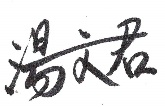 湯文君